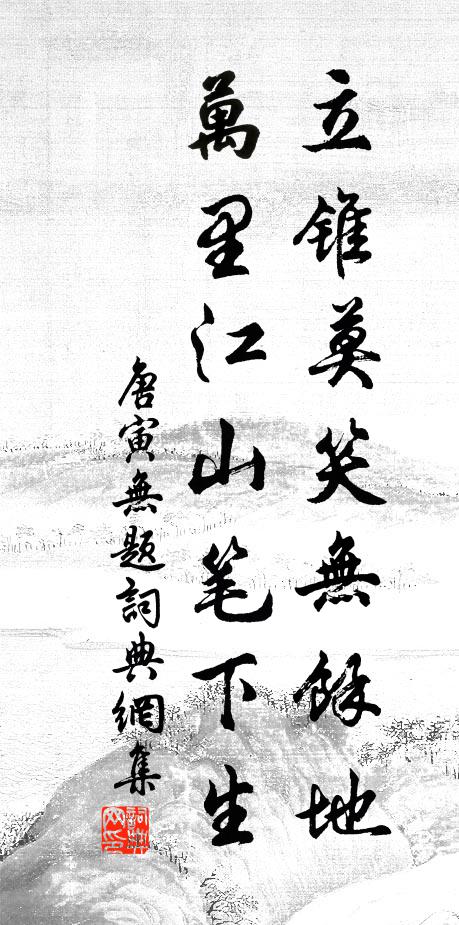 立錐莫笑無餘地
萬里江山笔下生
唐寅無題詞典網集